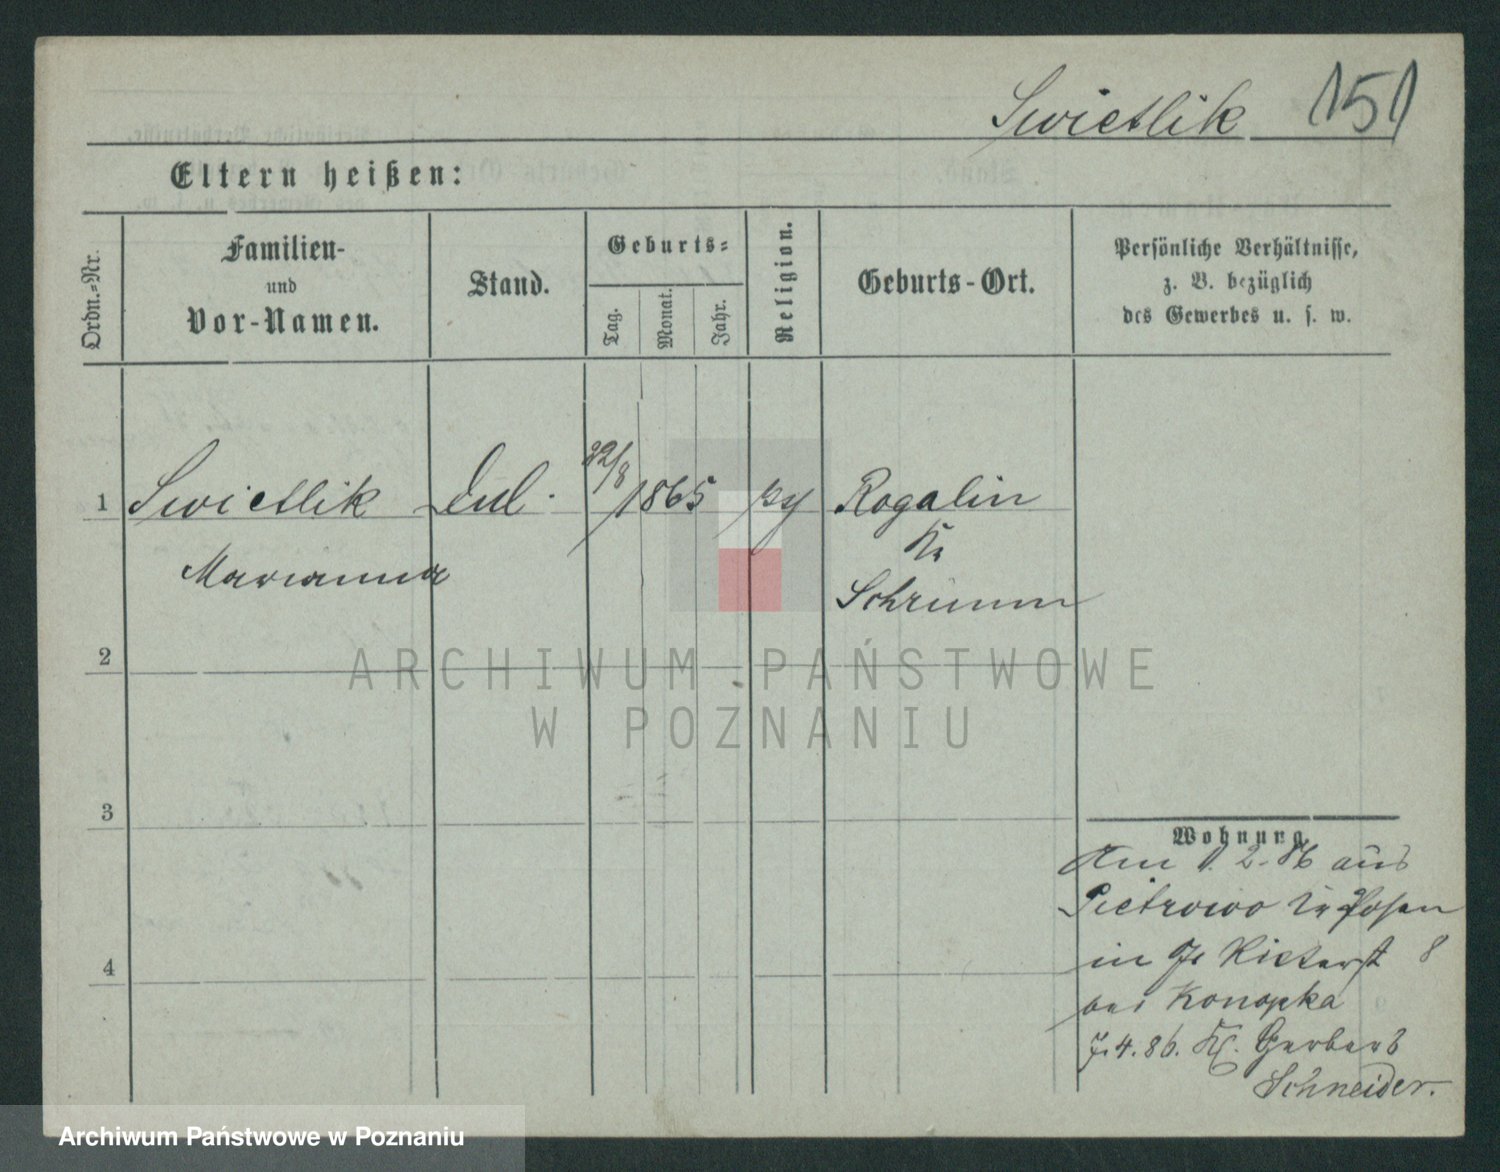 Swietlik 151
Eltern heißen:
Ordn.=Nr.
Familien-
und
Vor-Namen.
Stand.
Geburts=
Tag.
Monat.
Jahr.
Religion.
Geburts-Ort.
Persönliche Verhältnisse,
z. B. bezüglich
des Gewerbes u. s. w.
1 Swietlik 22/8 1865 Rogalin
Marianna
Kr
Schrimm
2
3
4
Wohnung
Am 1. 2. 86 aus
Pietrowo Kr Posen
in Gr Ritterst 8
bei Konopka
7.4.86. Kl. Gerberst
Schneider.
ARCHIWUM PAŃSTWOWE
W POZNANIU
Archiwum Państwowe w Poznaniu